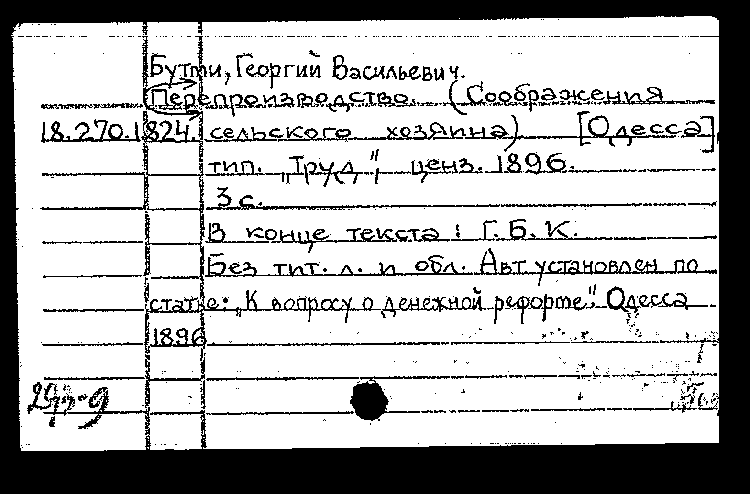 Бутми, Георгий Васильевич.
Перепроизводство. (Соображения
18.270.1824. сельского хозяина). [Одесса],
тип. „Труд", ценз. 1896.
3 с.
В конце текста: Г.Б.К.
Без тит. л. и обл. Авт установлен по
статье: „К вопросу о денежной реформе". Одесса
1896